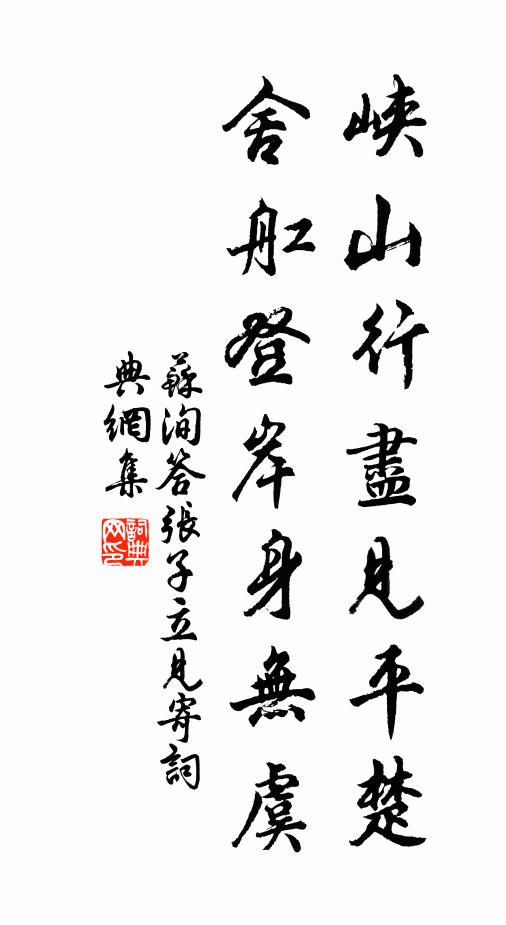 峽山行盡見平楚
舍舡登岸身無虞
蘇洵答張子立見寄詞
典網集
詞典網印